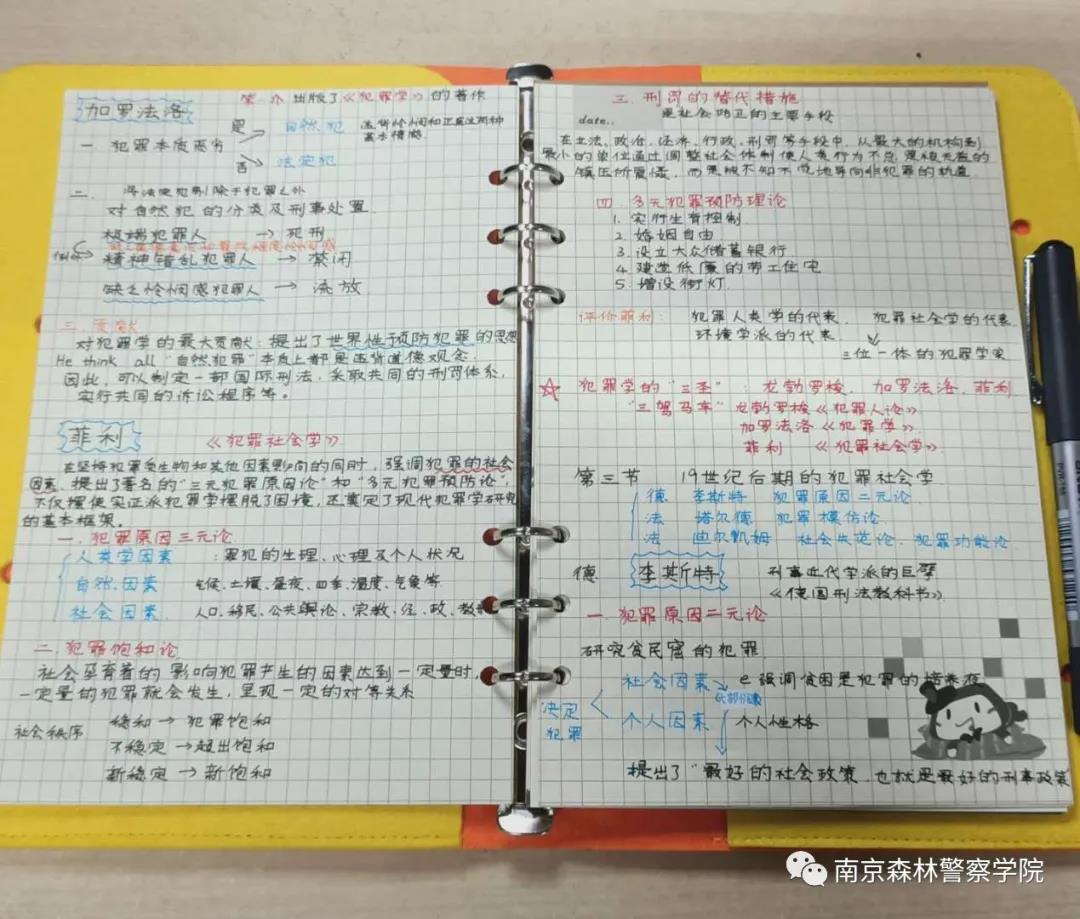 加罗法洛
第一次出版了《犯罪学》的著作
一 犯罪本质恶劣
是 自然犯 违背怜悯和正直这两种基本情感
否 法定犯
二、 将法定犯剔除于犯罪之外
对自然犯的分类及刑事处置
极端犯罪人 → 死刑
精神错乱犯罪人 → 禁闭
缺乏怜悯感犯罪人 → 流放
三、贡献
对犯罪学的最大贡献:提出了世界性预防犯罪的思想
He think all "自然犯罪"本质上都是违背道德观念
因此,可以制定一部国际刑法,采取共同的刑罚体系,
实行共同的诉讼程序等。
菲利 《犯罪社会学》
在坚持犯罪受生物和其他因素影响的同时,强调犯罪的社会
因素,提出了著名的“三元犯罪原因论”和“多元犯罪预防论”,
不仅援使实证派犯罪学摆脱了困境,还奠定了现代犯罪学研究
的基本框架。
一.犯罪原因三元论
人类学因素 :罪犯的生理、心理及个人状况
自然因素 气候、土壤、昼夜、四季、温度、气象等
社会因素 人口、移民、公共舆论、宗教、经、政、教
二.犯罪饱和论
社会孕育着的影响犯罪产生的因素达到一定量时,
一定量的犯罪就会发生,呈现一定的对等关系
社会秩序
稳和 → 犯罪饱和
不稳定 → 超出饱和
新稳定 → 新饱和
三.刑罚的替代措施
date..
是社会防卫的主要手段
在立法、政治、经济、行政、刑罚等手段中,从最大的机构到
最小的单位通过调整社会体制使人类行为不总是被无益的
镇压所震慑,而是被不知不觉地导向非犯罪的轨道
四.多元犯罪预防理论
1. 实行生育控制
2. 婚姻自由
3. 设立大众储蓄银行
4. 建造低廉的劳工住宅
5. 增设街灯.
评价菲利: 犯罪人类学的代表. 犯罪社会学的代表.
环境学派的代表.
三位一体的犯罪学家
☆ 犯罪学的“三圣”:龙勃罗梭、加罗法洛、菲利
“三驾马车” 龙勃罗梭《犯罪人论》.
加罗法洛《犯罪学》.
菲利 《犯罪社会学》.
第三节 19世纪后期的犯罪社会学
德 李斯特 犯罪原因二元论
法 塔尔德 犯罪模仿论.
法 迪尔凯姆 社会失范论、犯罪功能论
德 李斯特 刑事近代学派的巨擘
《德国刑法教科书》.
一.犯罪原因二元论
研究贫民窟的犯罪
决定犯罪
社会因素 强调贫困是犯罪的培养液
个人因素 个人性格
提出了“最好的社会政策,也就是最好的刑事政策
南京森林警察学院